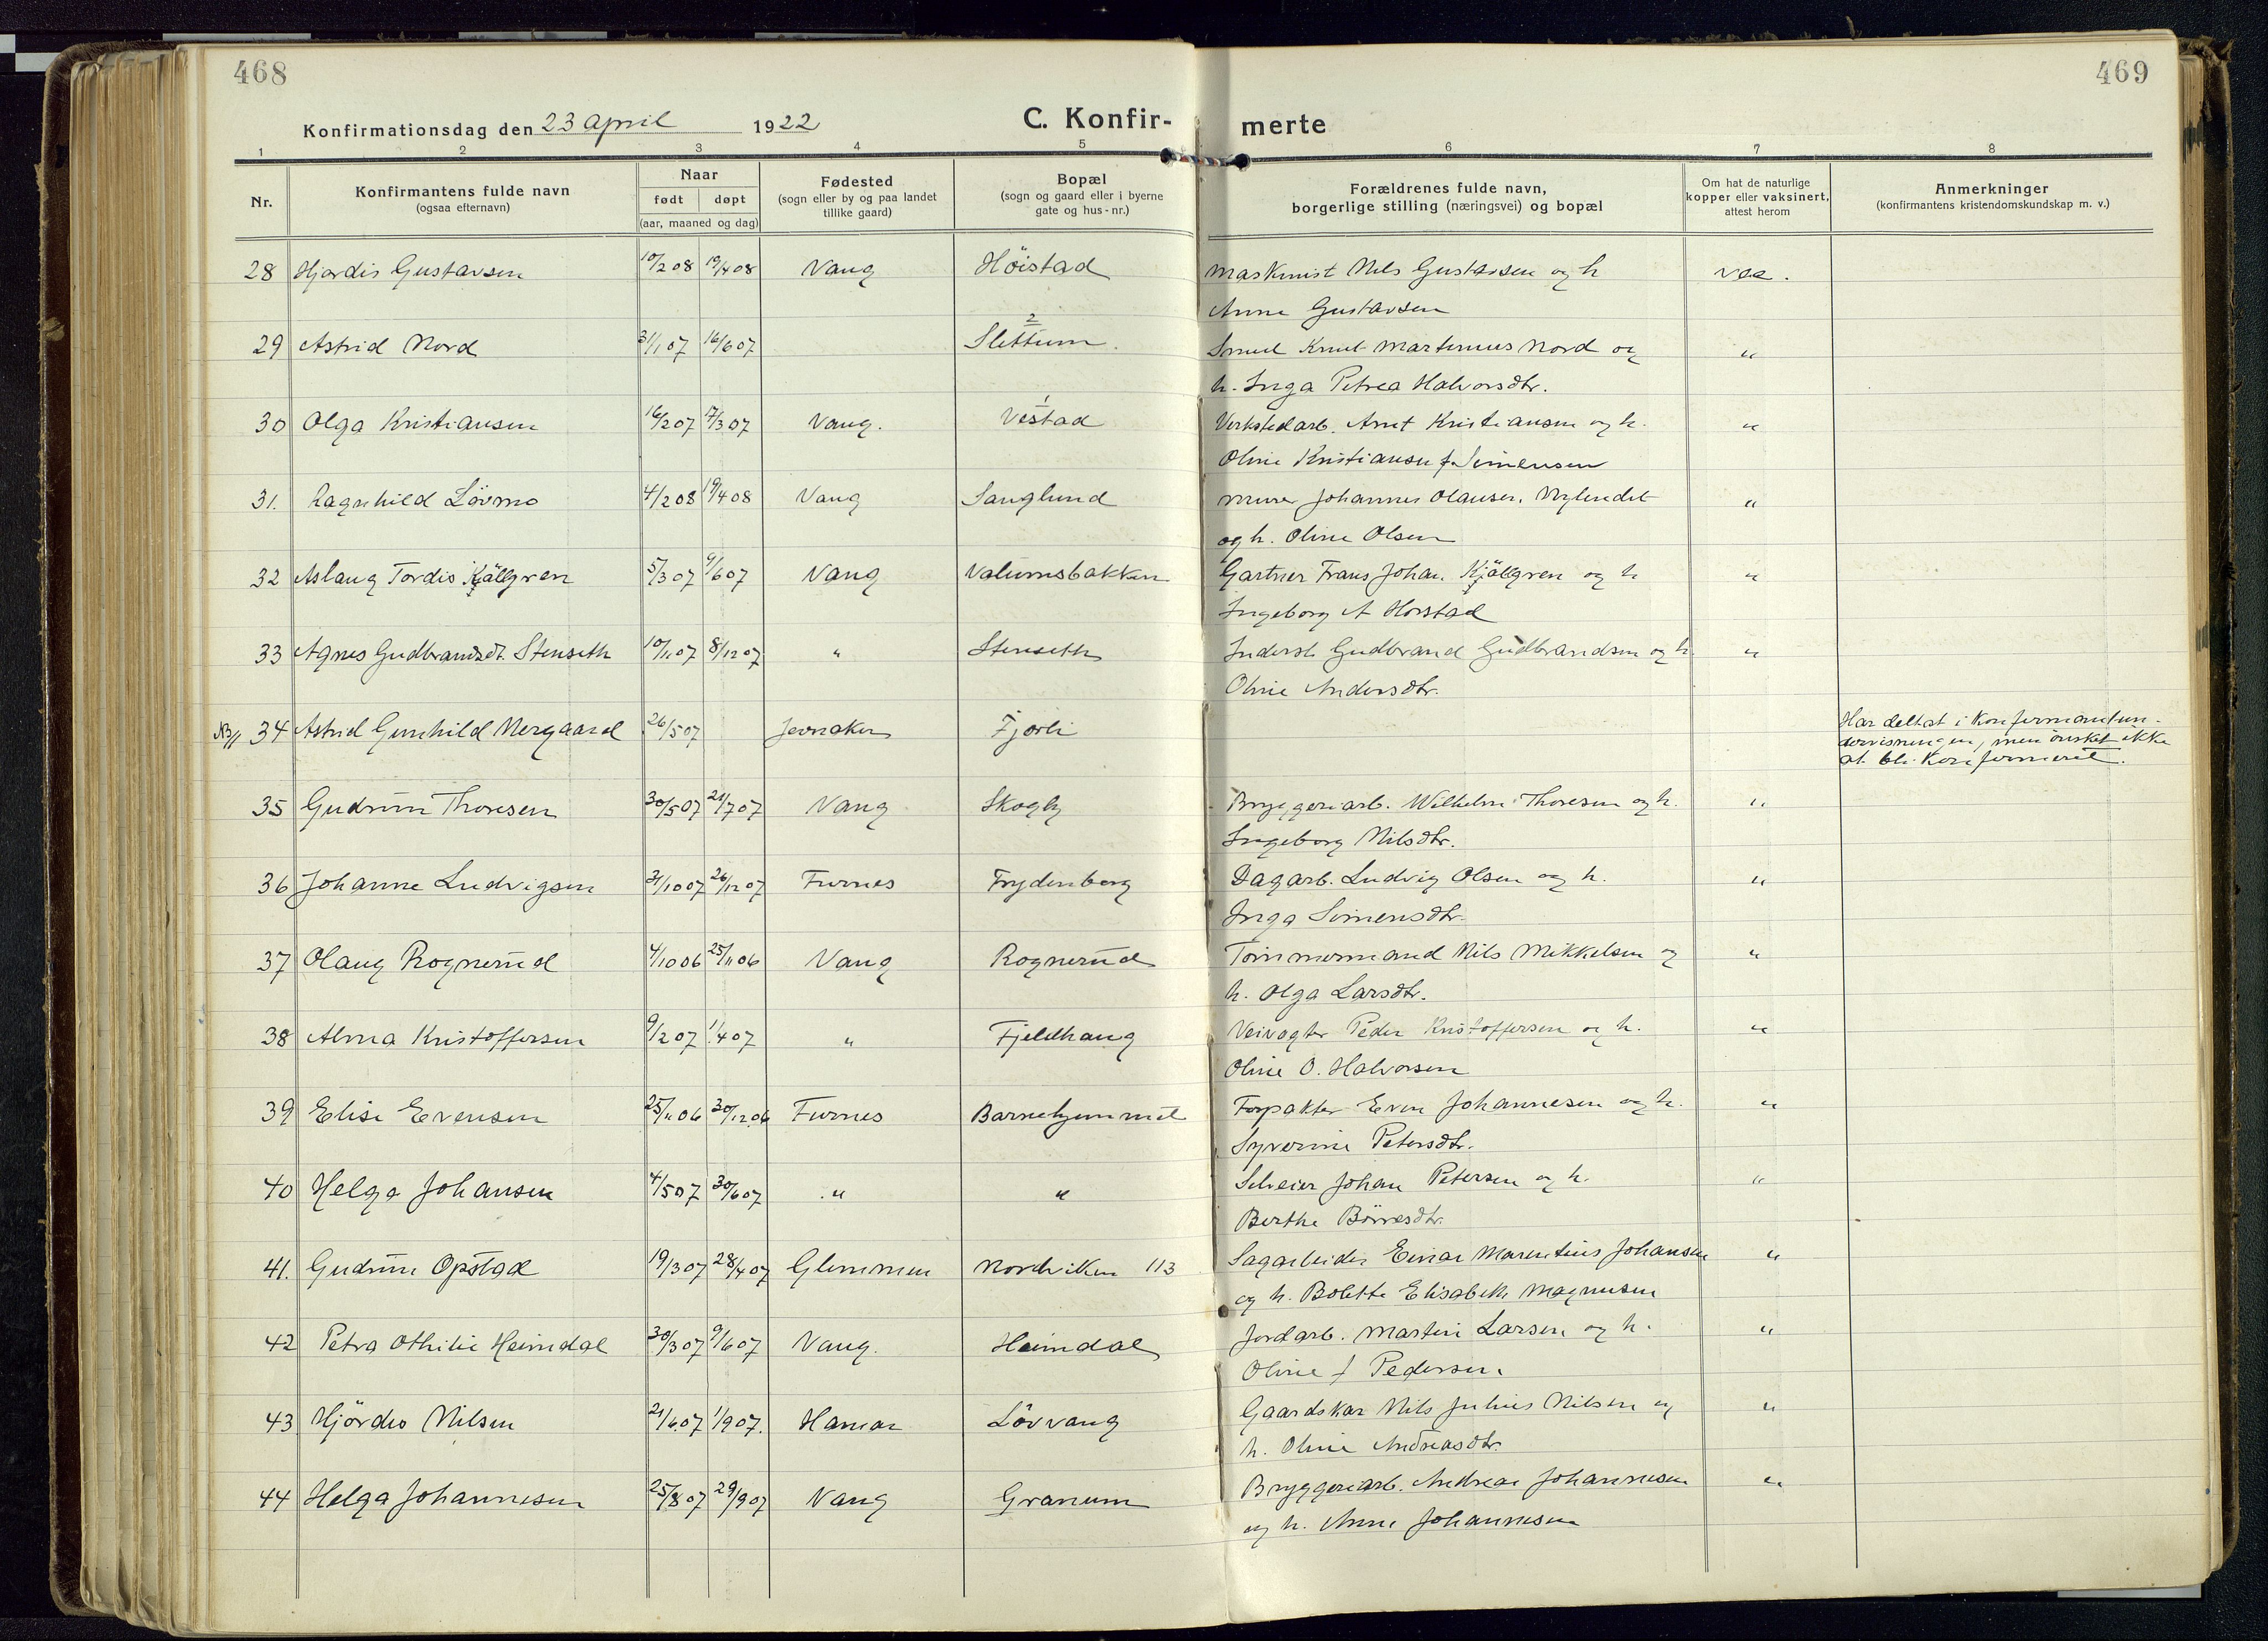 468
469
Konfirmationsdag den 23 april 1922
C. Konfir-
merte
1 2 3 4 5 6 7 8
Nr.
Konfirmantens fulde navn
(ogsaa efternavn)
Naar
født døpt
(aar, maaned og dag)
Fødested
(sogn eller by og paa landet
tillike gaard)
Bopæl
(sogn og gaard eller i byerne
gate og hus-nr.)
Forældrenes fulde navn,
borgerlige stilling (næringsvei) og bopæl
Om hat de naturlige
kopper eller vaksinert,
attest herom
Anmerkninger
(konfirmantens kristendomskundskap m. v.)
28 Hjordis Gustavsen 10/2 08 19/4 08 Vang Höistad Maskinist Nils Gustavsen og h vac.
Anna Gustavsen
29 Astrid Nord 31/1 07 16/6 07 Slettum 2. Smed Knut Martinius Nord og "
h. Inga Petrea Halvorsdtr.
30 Olga Kristiansen 16/2 07 17/3 07 Vang. Vestad 1 Verkstedarb. Arnt Kristiansen og h. "
Oline Kristiansen f. Simensen
31. Ragnhild Lövmo 4/2 08 19/4 08 Vang Sanglund Murer Johannes Olausen, Nylendet "
og h. Oline Olsen
32 Aslaug Tordis Kjällgren 5/3 07 9/6 07 Vang Valumsbakken Gartner Frans Johan Kjällgren og h "
Ingeborg A Horstad
33 Agnes Gudbrandsdt. Stenseth 10/11 07 8/12 07 " Stenseth Inderst Gudbrand Gudbrandsen og h. "
Oline Andersdtr.
NB// 34 Astrid Gunhild Nergaard 26/5 07 Jevnaker Fjorli Har deltat i konfirmantun-
dervisningen, men önsket ikke
at bli konfirmeret.
35 Gudrun Thoresen 30/5 07 21/7 07 Vang Skogly Bryggeriarb. Wilhelm Thoresen og h. "
Ingeborg Nilsdtr.
36 Johanne Ludvigsen 31/10 07 26/12 07 Furnes Frydenberg Dagarb. Ludvig Olsen og h. "
Inga Simensdtr.
37 Olaug Rognerud 4/10 06 25/11 06 Vang Rognerud Tømmermand Nils Mikkelsen og "
h. Olga Larsdtr.
38 Alma Kristoffersen 9/2 07 1/4 07 " Fjeldhaug Veivogter Peder Kristoffersen og h. "
Oline O. Halvorsen
39 Elise Evensen 25/11 06 30/12 06 Furnes Barnehjemmet Forpakter Even Johannesen og h. "
Syverine Petersdtr.
40 Helga Johansen 4/5 07 30/6 07 " " Selveier Johan Petersen og h. "
Berthe Börresdtr.
41. Gudrun Opstad 19/3 07 28/4 07 Glemmen Nordviken 113 Sagarbeider Einar Marentius Johansen "
og h. Bolette Elisabeth Magnusen
42 Petra Othilie Heimdal 30/3 07 9/6 07 Vang. Heimdal Jordarb. Martin Larsen og h. "
Oline f Pedersen.
43 Hjördis Nilsen 21/6 07 1/9 07. Hamar Lövvang Gaardskar Nils Julius Nilsen og "
h. Oline Andreasdtr.
44 Helga Johannesen 25/8 07 29/9 07 Vang Granum Bryggeriarb. Andreas Johannesen "
og h. Anna Johannesen